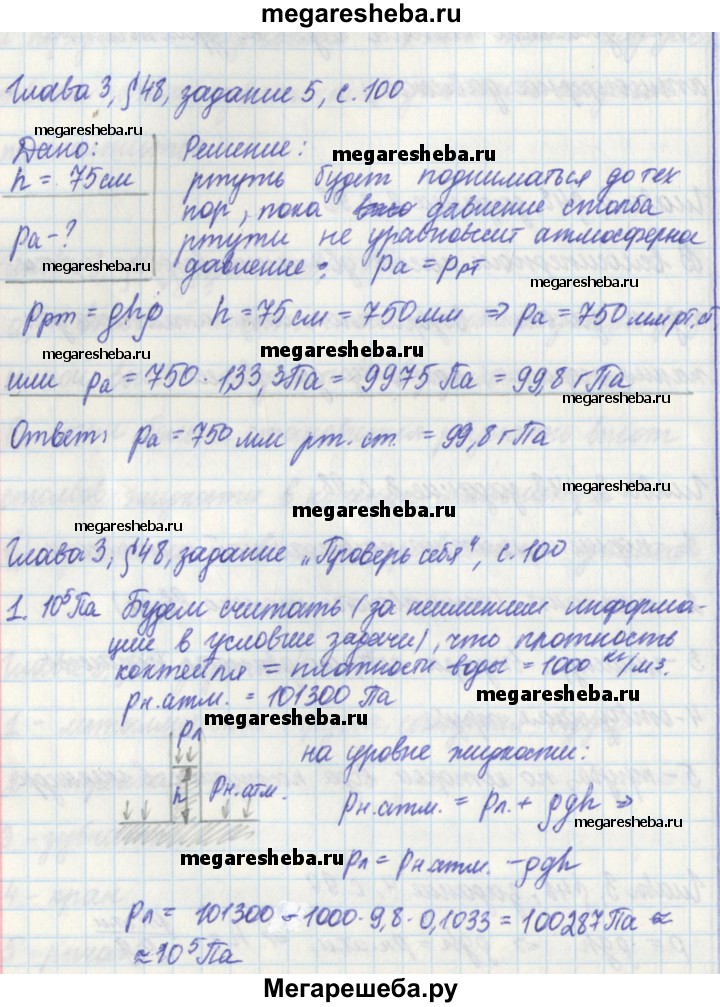 megaresheba.ru
Глава 3, §48, задание 5, с. 100
megaresheba.ru
Дано: Решение:
megaresheba.ru
h = 75 см ртуть будет подниматься до тех
пор, пока давление столба
pа - ? ртути не уравновесит атмосферное
megaresheba.ru
давление: pа = pрт
megaresheba.ru
pрт = ghρ h = 75 см = 750 мм => pа = 750 мм рт. ст
megaresheba.ru
или pа = 750 · 133,3 Па = 9975 Па = 99,8 гПа
megaresheba.ru
Ответ: pа = 750 мм рт. ст. = 99,8 гПа
megaresheba.ru
megaresheba.ru
megaresheba.ru
Глава 3, §48, задание „Проверь себя“, с. 100
megaresheba.ru
1. 10⁵ Па Будем считать (за неимением информа-
ции в условие задачи), что плотность
коктейля = плотности воды = 1000 кг/м3.
pн.атм. = 101300 Па
megaresheba.ru
megaresheba.ru
pл на уровне жидкости:
h pн.атм.
pн.атм. = pл + ρgh =>
megaresheba.ru
megaresheba.ru
pл = pн.атм. - ρgh
pл = 101300 - 1000 · 9,8 · 0,1033 = 100287 Па ≈
≈ 10⁵ Па
Мегарешеба.ру